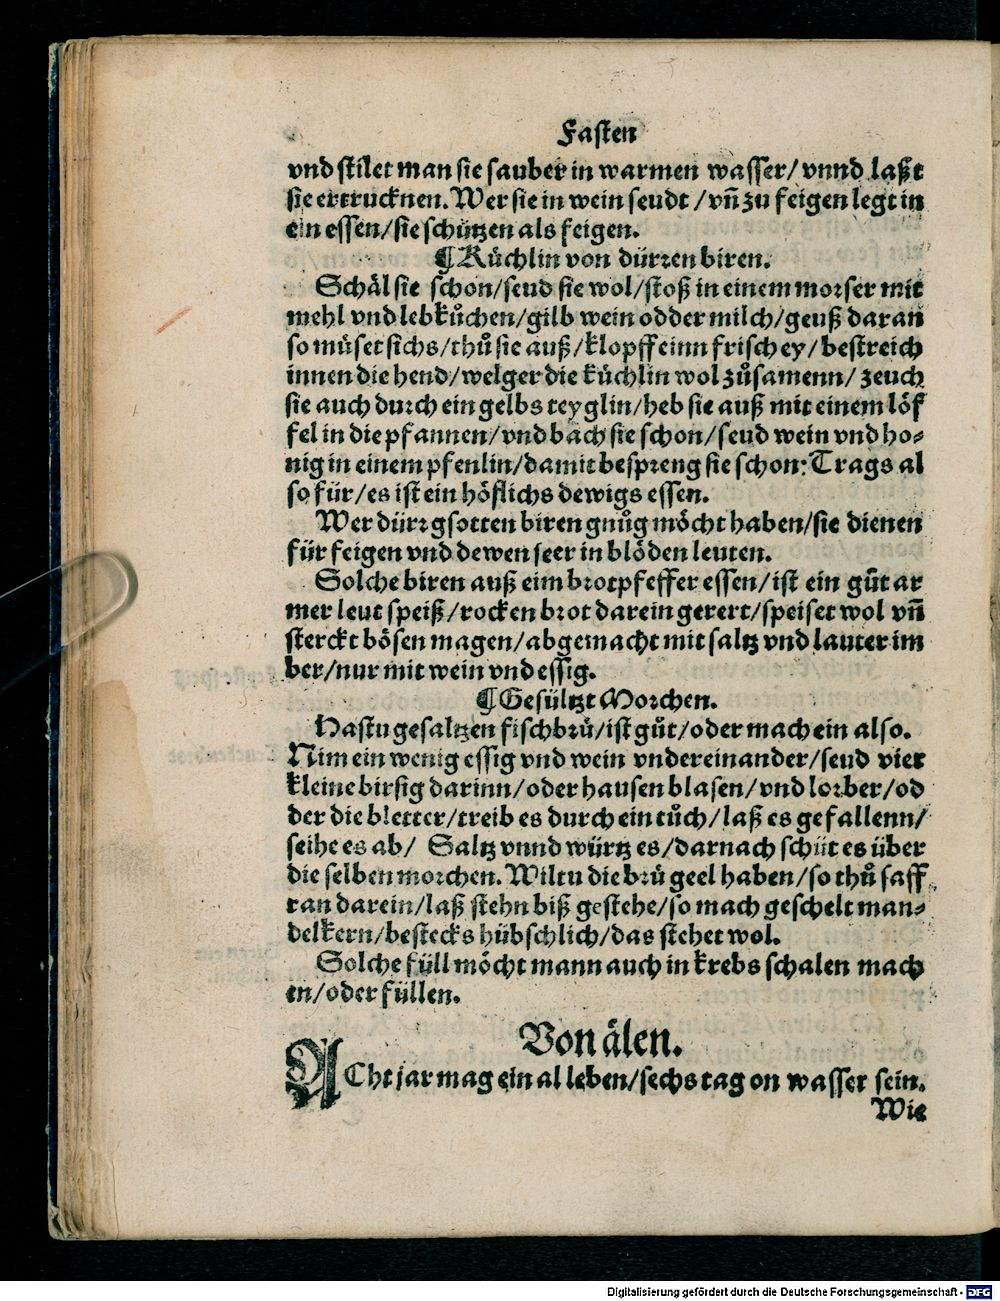 Fasten
vnd stilet man sie sauber in warmen wasser/vnnd laßt
sie ertrucknen. Wer sie in wein seudt/vñ zu feigen legt in
ein essen/sie schützen als feigen.
¶ Kůchlin von dürren biren.
Schäl sie schon/seud sie wol/stoß in einem morser mit
mehl vnd lebkůchen/gilb wein odder milch/geuß daran
so müset sichs/thů sie auß/klopff einn frisch ey/bestreich
innen die hend/welger die küchlin wol zůsamenn/zeuch
sie auch durch ein gelbs teyglin/heb sie auß mit einem löf
fel in die pfannen/vnd bach sie schon/seud wein vnd ho⸗
nig in einem pfenlin/damit bespreng sie schon: Trags al
so für/es ist ein höflichs dewigs essen.
Wer dürr gsotten biren gnůg möcht haben/sie dienen
für feigen vnd dewen seer in blöden leuten.
Solche biren auß eim brotpfeffer essen/ist ein gůt ar
mer leut speiß/rocken brot darein gerert/speiset wol vñ
sterckt bösen magen/abgemacht mit saltz vnd lauter im
ber/nur mit wein vnd essig.
¶ Gesültzt Morchen.
Hastu gesaltzen fischbrů/ist gůt/oder mach ein also.
Nim ein wenig essig vnd wein vndereinander/seud vier
kleine birsig darinn/oder hausen blasen/vnd lorber/od
der die bletter/treib es durch ein tůch/laß es gefallenn/
seihe es ab/ Saltz vnnd würtz es/darnach schüt es über
die selben morchen. Wiltu die brů geel haben/so thů saff
ran darein/laß stehn biß gestehe/so mach geschelt man⸗
delkern/bestecks hübschlich/das stehet wol.
Solche füll möcht mann auch in krebs schalen mach
en/oder füllen.
Von älen.
ACht jar mag ein al leben/sechs tag on wasser sein.
Wie
Digitalisierung gefördert durch die Deutsche Forschungsgemeinschaft - DFG